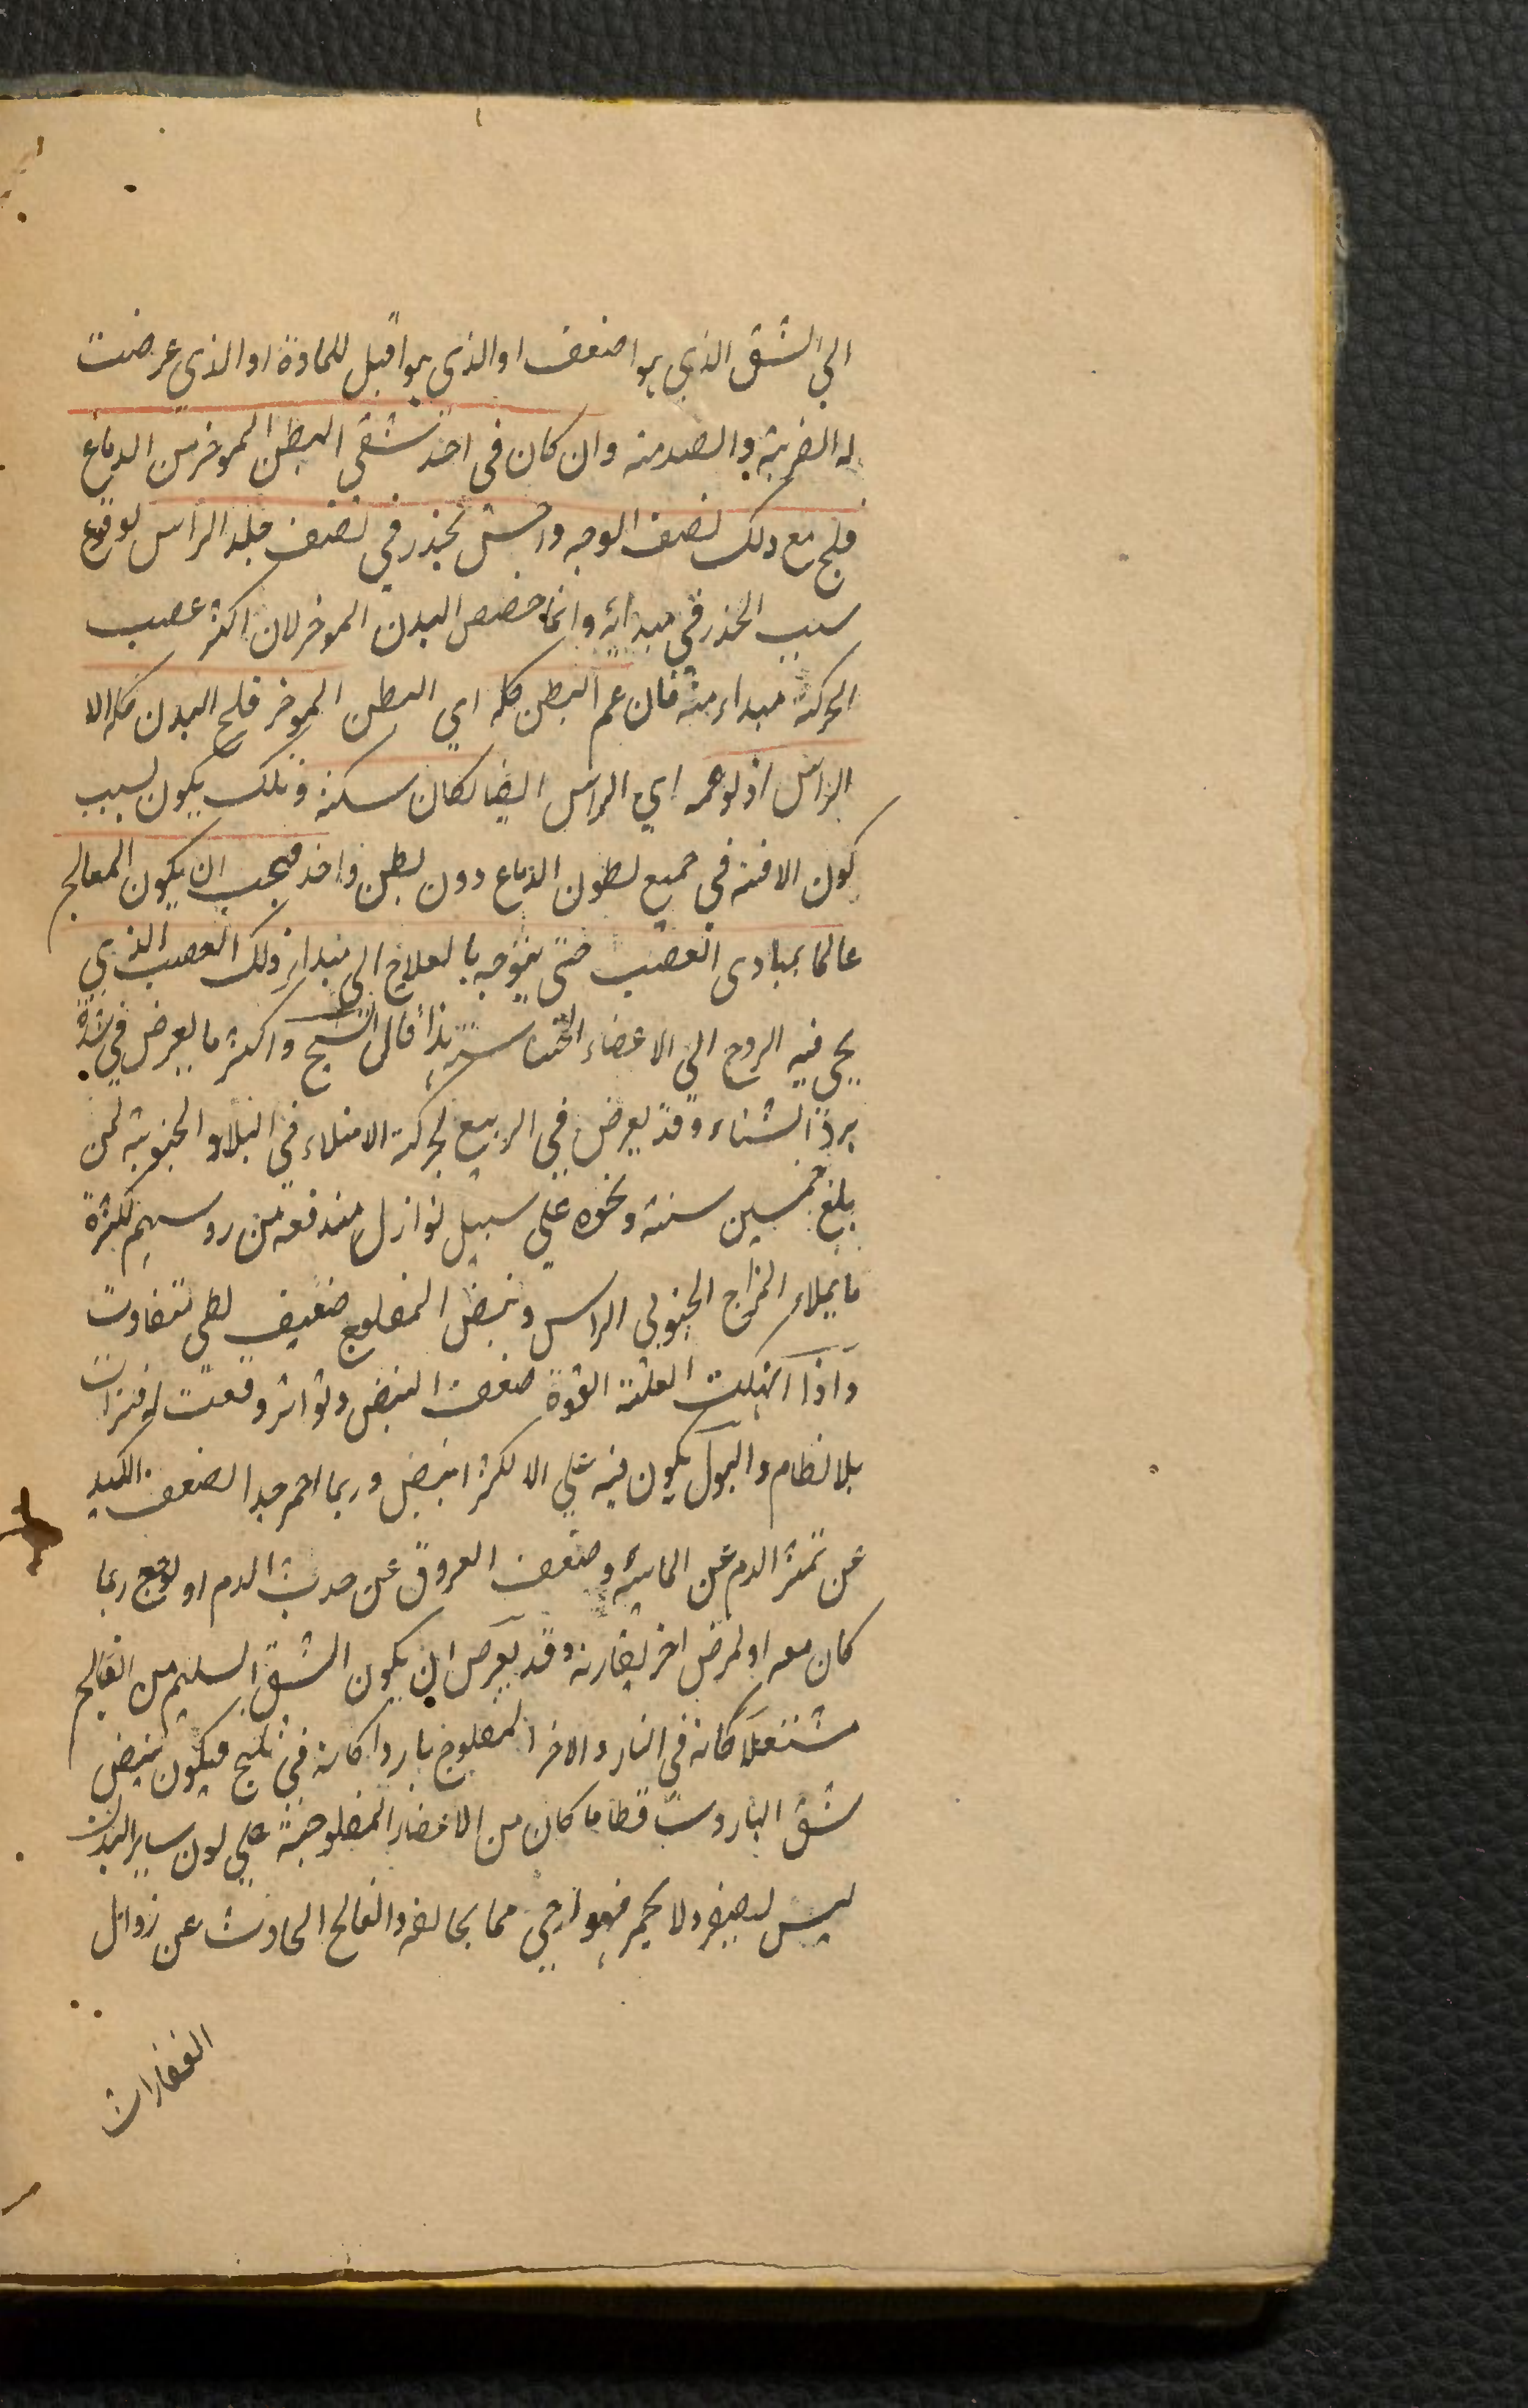 الي الشق الذي هو اضعف او الذي هو اقبل للمادة او الذي عرضت
له الضربة والصدمة وان كان في احد شقي البطن الموخر من الدماغ
فلج مع ذلك نصف الوجه واحس بخدر في نصف جلد الراس لوقوع
سبب الخدر في مبدائه وانما خصص البدن الموخر لان اكثر عصب
الحركة مبداء منه فان عم البطن كله اي البطن الموخر فلج البدن كله الا
الراس اذ لو عمه اي الراس ايضا لكان سكتة وتلك يكون بسبب
كون الافة في جميع بطون الدماغ دون بطن واحد فيجب ان يكون المعالج
عالما بمبادى العصب حتى يتوجه بالعلاج الى مبداء ذلك العصب الذي
يجي فيه الروح الى الاعضاء هذا قال الشيخ واكثر ما يعرض في شدة
برد الشتاء وقد يعرض في الربيع لحركة الامتلاء في البلاد الجنوبية لمن
بلغ خمسين سنة ونحوه علي سبيل نوازل مندفعة من روسهم لكثرة
ما يملاء المزاج الجنوبى الراس ونبض المفلوج ضعيف بطى متفاوت
واذا انهكت العلة القوة ضعف النبض وتواتر وقعت له فترات
بلا نظام والبول يكون فيه علي الاكثر ابيض وربما احمر جدا لضعف الكبد
عن تميز الدم عن المائية وضعف العروق عن جذب الدم او لوجع ربما
كان معه او لمرض اخر يقارنه وقد يعرض ان يكون الشق السليم من الفالج
مشتعلا كانه في النار والاخر المفلوج باردا كانه في ثلج فيكون نبض
شق البارد ساقطا ما كان من الاعضاء المفلوجة علي لون ساير البدن
ليس يصفر ولا يحمر فهو ارجى مما يخالفه والفالج الحادث عن زوال
الفقارات